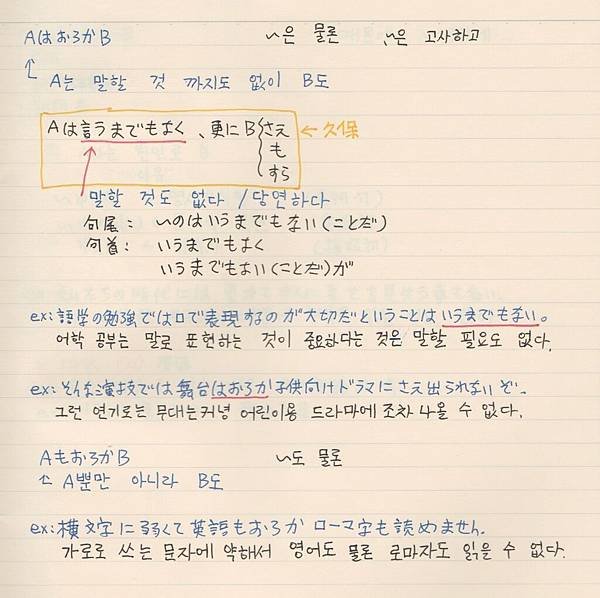 AはおろかB ~은 물론 ~은 고사하고
A는 말할 것 까지도 없이 B도
Aは言うまでもなく、更にB さえ ← 久保
も
すら
말할 것도 없다 / 당연하다
句尾: ~のはいうまでもない(ことだ)
句首: いうまでもなく
いうまでもない(ことだ)が
ex: 語学の勉強では口で表現するのが大切だということはいうまでもない。
어학 공부는 말로 표현하는 것이 중요하다는 것은 말할 필요도 없다.
ex: そんな演技では舞台はおろか子供向けドラマにさえ出られないぞ.
그런 연기로는 무대는커녕 어린이용 드라마에 조차 나올 수 없다.
AもおろかB ~도 물론
A뿐만 아니라 B도
ex: 横文字に弱くて英語もおろかローマ字も読めません.
가로로 쓰는 문자에 약해서 영어도 물론 로마자도 읽을 수 없다.